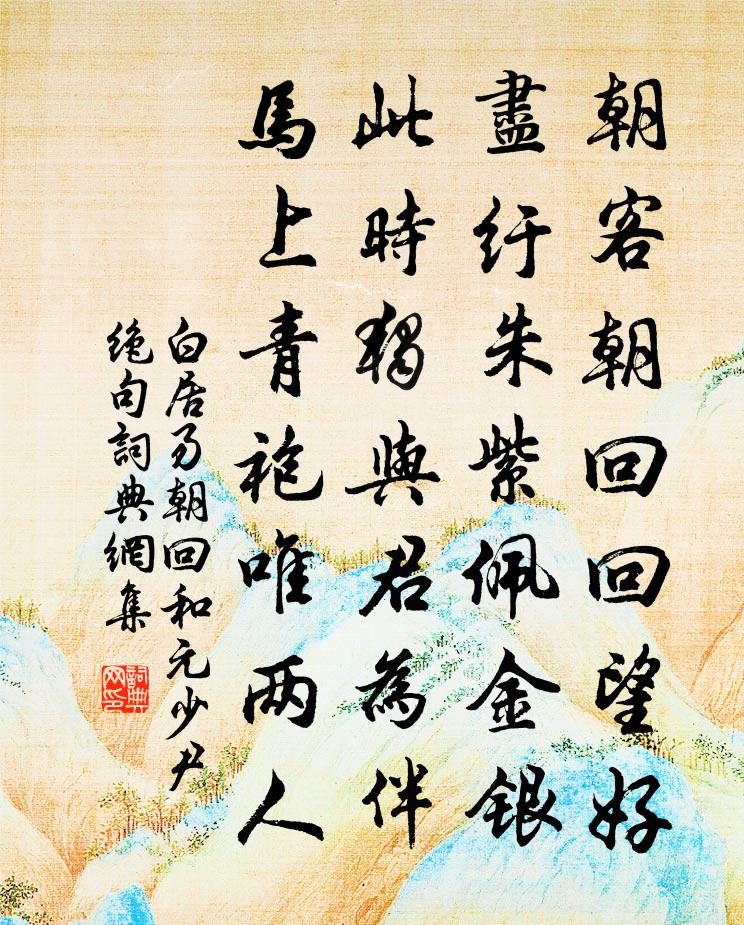 朝客朝回回望好
盡紆朱紫佩金銀
此時獨與君為伴
馬上青袍唯两人
白居易朝回和元少尹
絶句詞典網集
詞典網印